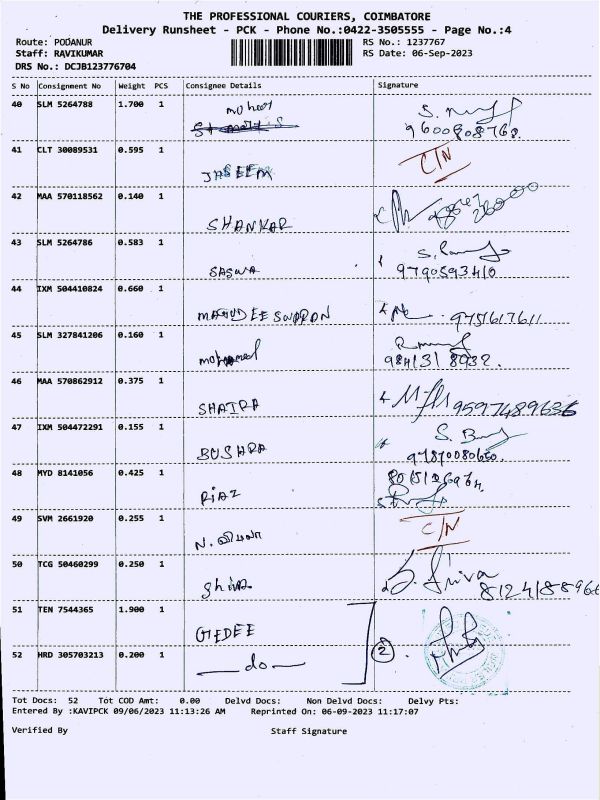 THE PROFESSIONAL COURIERS, COIMBATORE
Delivery Runsheet - PCK - Phone No.:0422-3505555 - Page No.:4
Route: PODANUR RS No.: 1237767
Staff: RAVIKUMAR RS Date: 06-Sep-2023
DRS No.: DCJB123776704
S No Consignment No Weight PCS Consignee Details Signature
40 SLM 5264788 1.700 1
9600808768.
41 CLT 30089531 0.595 1 JASEEM C/N
42 MAA 570118562 0.140 1 SHANKAR
43 SLM 5264786 0.583 1 SASWA 9790593410
44 IXM 504410824 0.660 1 9751617611
45 SLM 327841206 0.160 1 mohamed 984131 8032.
46 MAA 570862912 0.375 1 SHAIRA 9597489636
47 IXM 504472291 0.155 1 BUSHRA
48 MYD 8141056 0.425 1 RIAZ
49 SVM 2661920 0.255 1 N. C/N
50 TCG 50460299 0.250 1 Shiva
51 TEN 7544365 1.900 1 GEDEE
52 HRD 305703213 0.200 1 — do — 2
Tot Docs: 52 Tot COD Amt: 0.00 Delvd Docs: Non Delvd Docs: Delvy Pts:
Entered By :KAVIPCK 09/06/2023 11:13:26 AM Reprinted On: 06-09-2023 11:17:07
Verified By Staff Signature